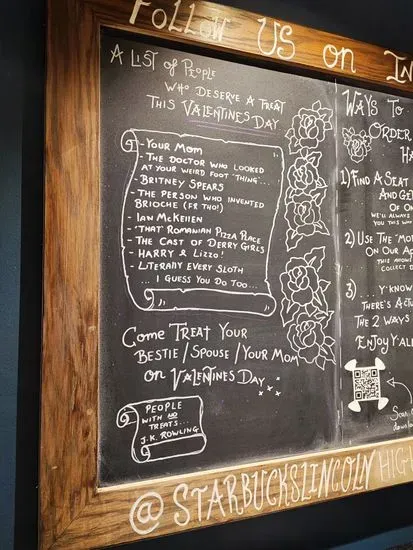 FOLLOW US ON IN
A LIST OF PEOPLE
WHO DESERVE A TREAT
THIS VALENTINES DAY
- YOUR MOM
- THE DOCTOR WHO LOOKED
AT YOUR WEIRD FOOT "THING"...
- BRITNEY SPEARS
- THE PERSON WHO INVENTED
BRIOCHE (FR THO!)
- IAN MCKELLEN
- "THAT" ROMANIAN PIZZA PLACE
- THE CAST OF DERRY GIRLS
- HARRY & LIZZO!
- LITERALLY EVERY SLOTH
... I GUESS YOU DO TOO...
COME TREAT YOUR
BESTIE / SPOUSE / YOUR MOM
ON VALENTINES DAY
PEOPLE
WITH NO
TREATS...
J.K. ROWLING
WAYS TO
ORDER
HA
1) FIND A SEAT
AND GE
OF O
WE'LL ALWAYS
YOU THIS WAY
2) USE THE "MO
ON OUR A
THIS ALLOWS
COLLECT
3) .... Y'KNOW
THERE'S ACTU
THE 2 WAYS
ENJOY Y'ALL
SCAN
DOWNLO
@STARBUCKSLINCOLNHIGH